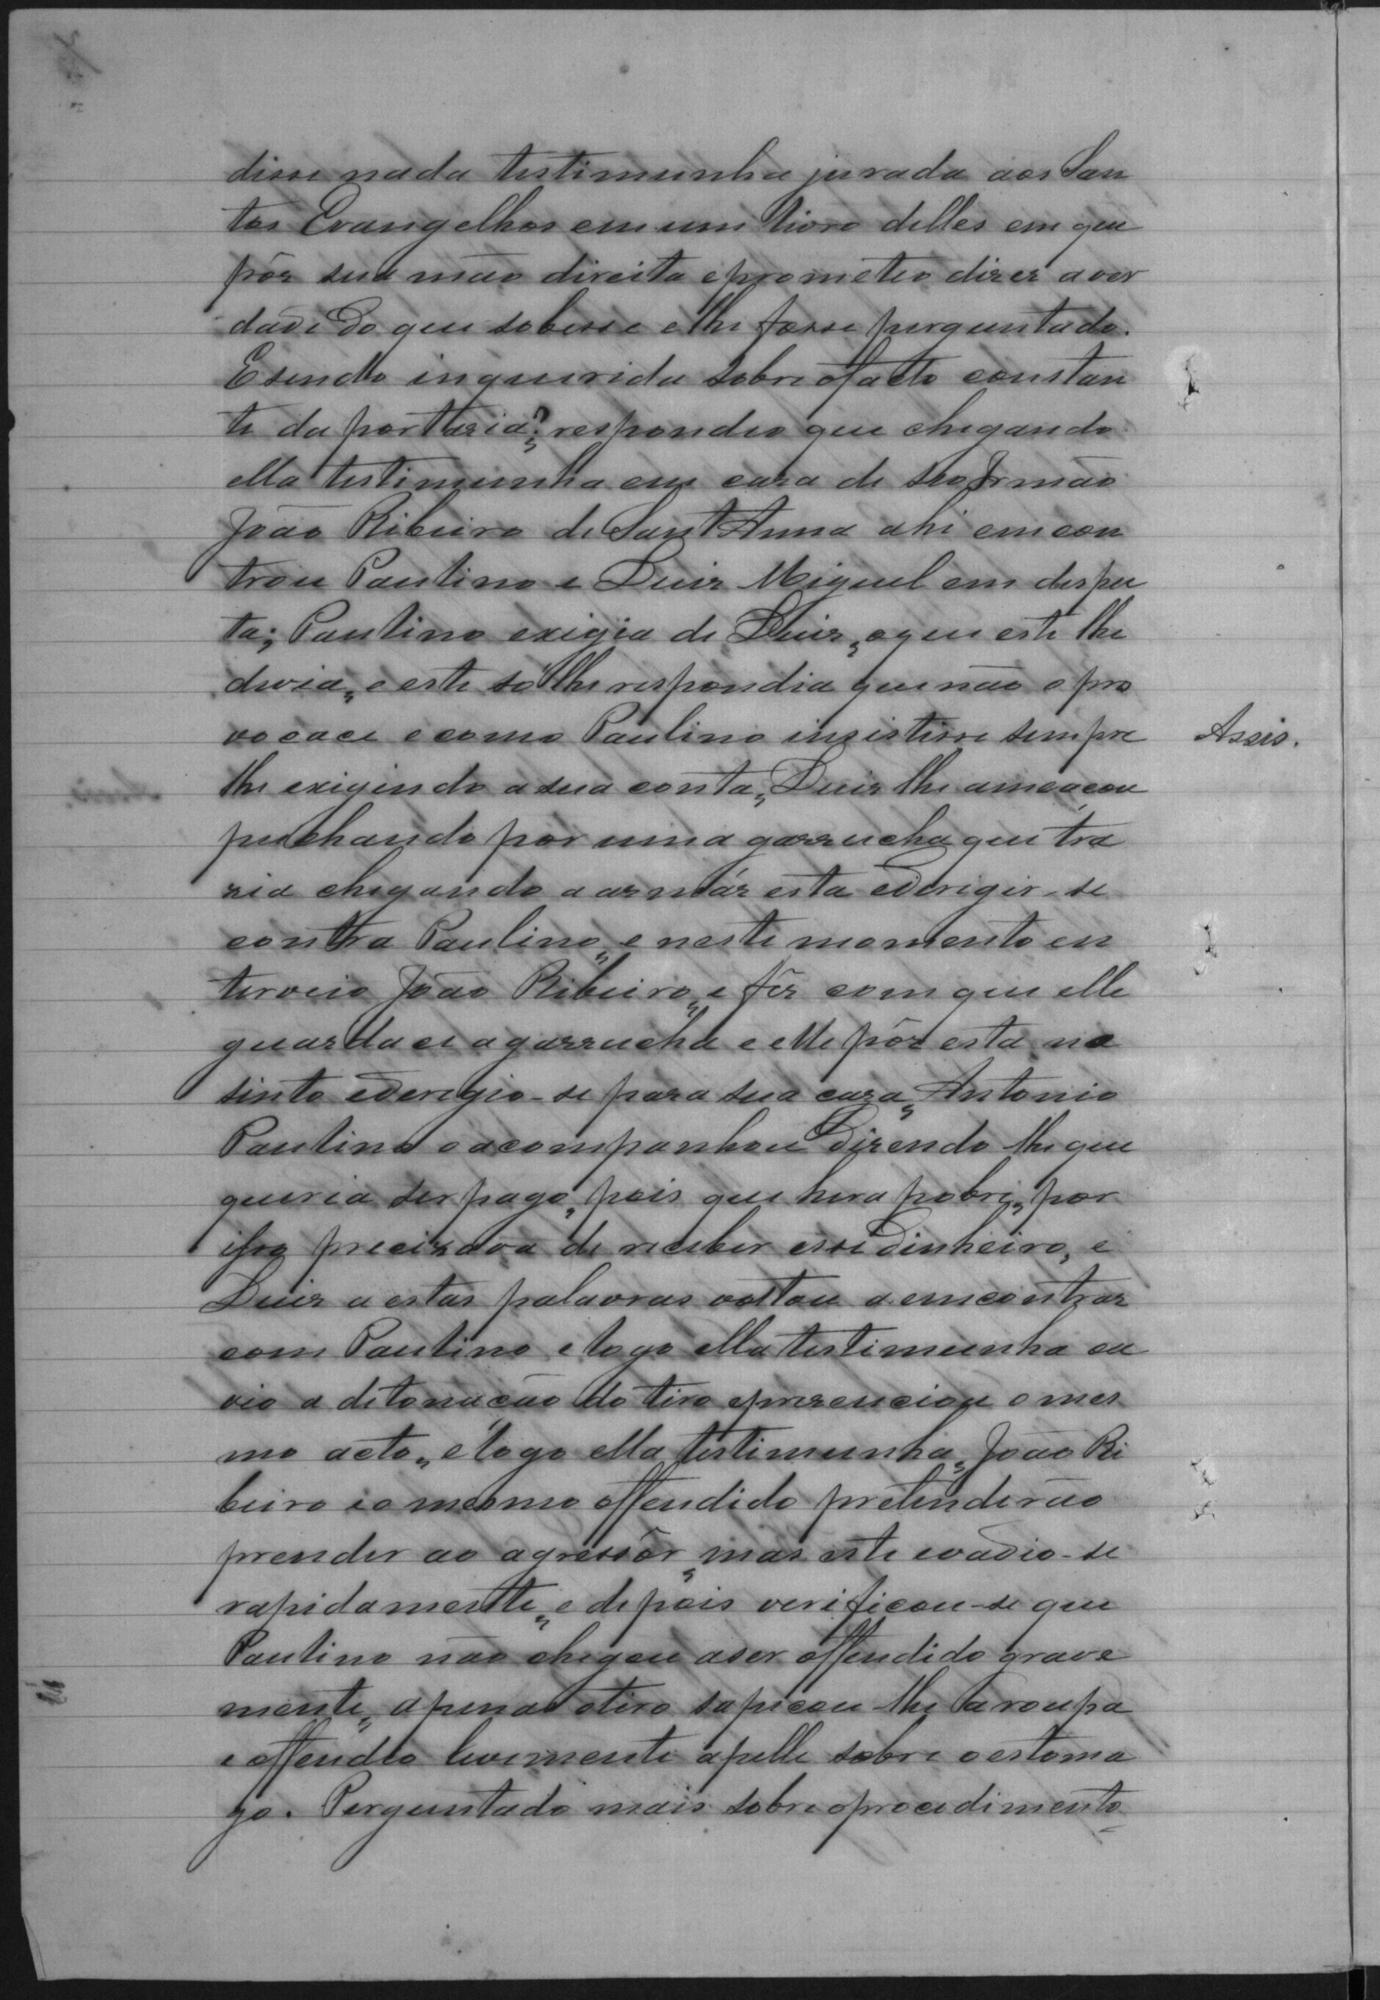 disse nada testimunha jurada aos San
tos Evangelhos em um livro delles em que
pôz sua mão direita e prometeo dizer a ver
dade do que sobesse e lhe fosse perguntado.
E sendo inquerida sobre o facto constan
te da portaria? respondeo que chegando
ella testimunha em caza de seo Irmão
João Ribeiro de Sant Anna ahi emcon
trou Paulino e Luiz Miguel em despu
ta; Paulino exigia de Luiz, o que este lhe
devia, e este só lhe respondia que não o pro
vocace e como Paulino insistisse sempre
lhe exigindo a sua conta, Luiz lhe ameaçou
puchando por uma garrucha que tra
zia chegando a armár esta e derigir-se
contra Paulino, e neste momento en
terveio João Ribeiro, e fêz com que elle
guardace a garrucha e elle pôz esta no
sinto e deregio-se para sua caza, Antonio
Paulino o acompanhou dizendo lhe que
queria ser pago, pois que hera pobre, por
isso precizava de receber esse dinheiro, e
Luiz a estas palavras voltou a emcontrar
com Paulino e logo ella testimunha ou
vio a detonação do tiro e prezenciou o mes
mo acto, e logo ella testimunha, João Ri
beiro e o mesmo offendido pretenderão
prender ao agressôr, mas este evadio-se
rapidamente, e depois verificou-se que
Paulino não chegou a ser offendido grave
mente, apenas o tiro sapicou-lhe a roupa
e offendeo levemente a pelle sobre o estoma
go. Perguntado mais sobre o procedimento
Assis.